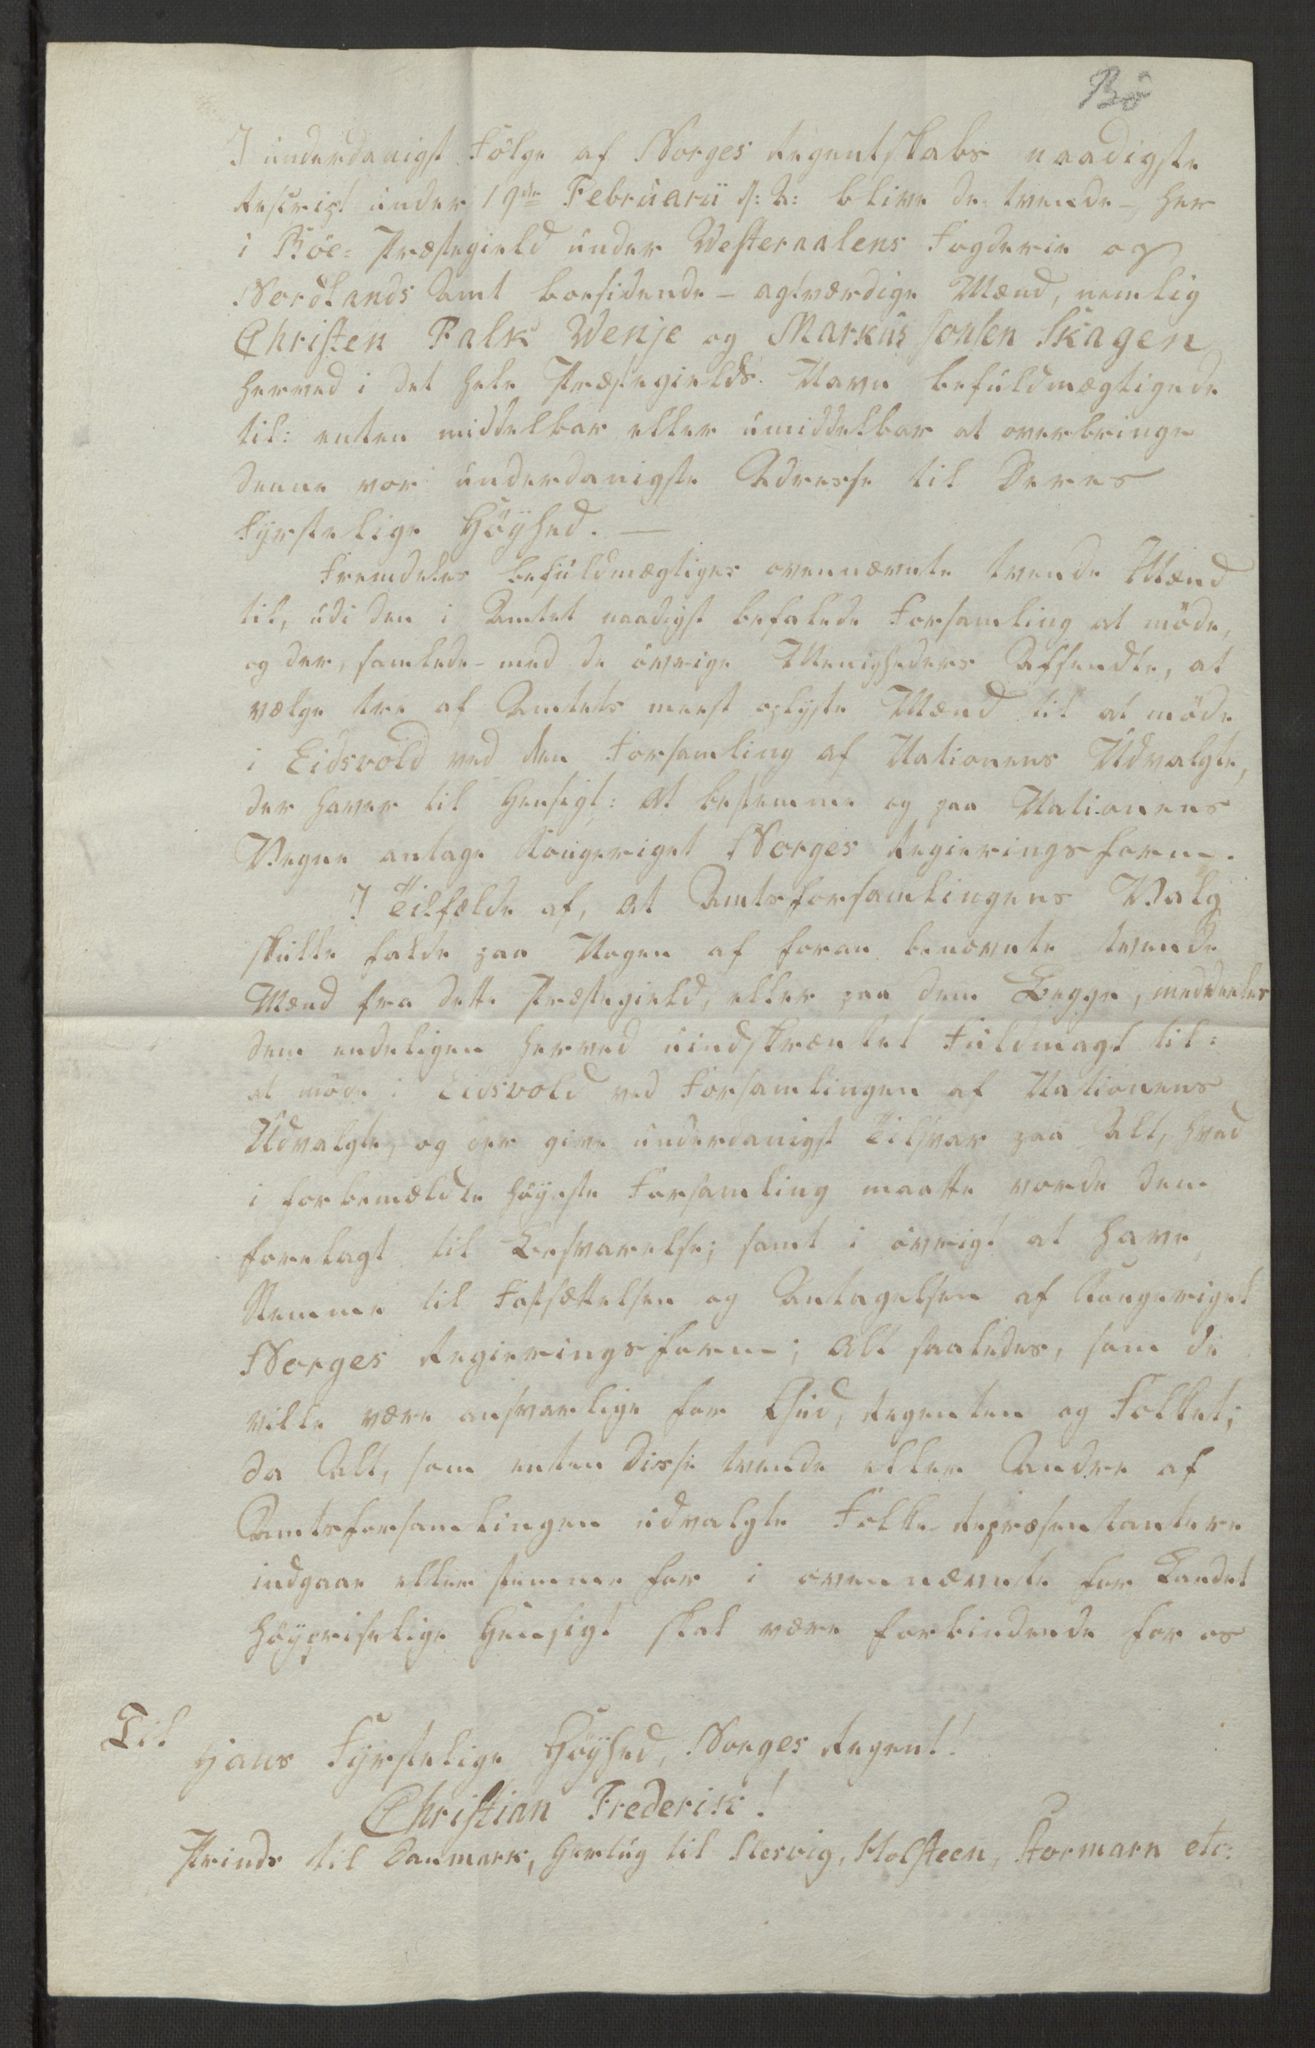 Bö
I underdanigst Følge af Norges Regentskabs naadigste
Rescript under 19de Februarii d: A: blive de tvende – her
i Böe- Præstegield under Westeraalens Fogderie og
Nordlands Amt boesidende – agtværdige Mænd, nemlig
Christen Falk Wenje og Markus Jonsen Skagen
herved i det hele Præstegields Navn befuldmægtigede
til: enten middelbar eller umiddelbar at overbringe
denne vor underdanigste Adresse til Deres
Fyrstelige Höyhed. —
Fremdeles befuldmægtiges ovennævnte tvende Mænd
til, udi den i Amtet naadigst befalede Forsamling at møde,
og der, samlede – med de övrige Menigheders Affsendte, at
vælge tre af Amtets meest oplyste Mænd til at møde
i Eidsvold ved den Forsamling af Nationens Udvalgte,
der haver til Hensigt: at bestemme og paa Nationens
Vegne antage Kongeriget Norges Regieringsform.
I Tilfælde af, at Amtsforsamlingens Valg
skulle falde paa Nogen af foran benævnte tvende
Mænd fra dette Præstegield, eller paa dem Begge, meddeeles
dem endeligen herved uindskrænket Fuldmagt til:
at møde i Eidsvold ved Forsamlingen af Nationens
Udvalgte, og der give underdanigst Tilsvar paa Alt, hvad
i forbemældte høyeste Forsamling maatte vorde dem
forelagt til Besvarelse; samt i övrigt at have
Stemme til Fastsættelsen og Antagelsen af Kongeriget
Norges Regieringsform; Alt saaledes, som de
ville være ansvarlige for Gud, Regenten og Folket;
da Alt, som enten disse tvende eller Andre af
Amtsforsamlingen udvalgte Folke-Repræsentantere
indgaae eller stemme for i ovennævnte for Landet
höypriselige Hensigt skal være forbindende for os
Til
Hans Fyrstelige Höyhed, Norges Regent!
Christian Frederik!
Prinds til Danmark, Hertug til Slesvig, Holsteen, Stormarn etc: